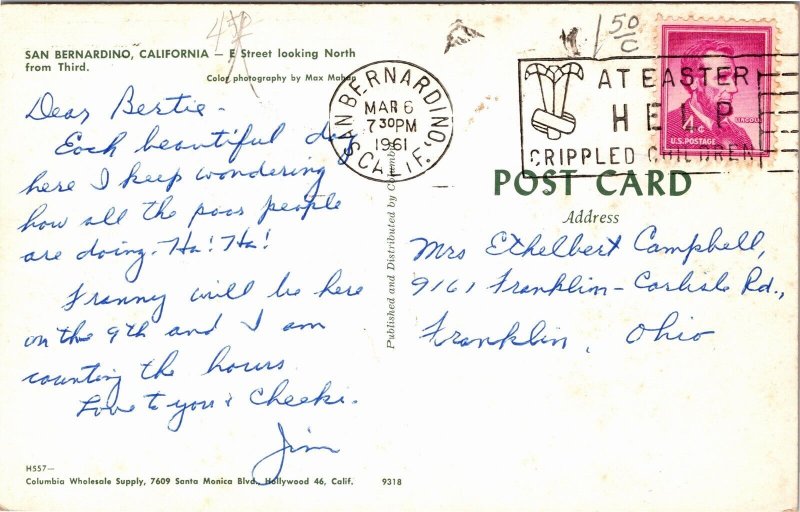 SAN BERNARDINO, CALIFORNIA — E Street looking North
from Third.
Color photography by Max Mahan
Dear Bertie -
Each beautiful day
here I keep wondering
how all the poor people
are doing. Ha! Ha!
Franny will be here
on the 9th and I am
counting the hours.
Love to you & Cheeki.
Jim
H557—
Columbia Wholesale Supply, 7609 Santa Monica Blvd., Hollywood 46, Calif. 9318
Published and Distributed by Columbia
SAN BERNARDINO,
MAR 6
7 30 PM
1961
CALIF.
50
C
AT EASTER
HELP
CRIPPLED CHILDREN
LINCOLN
4¢
U.S. POSTAGE
POST CARD
Address
Mrs Ethelbert Campbell,
9161 Franklin-Carlisle Rd.,
Franklin, Ohio